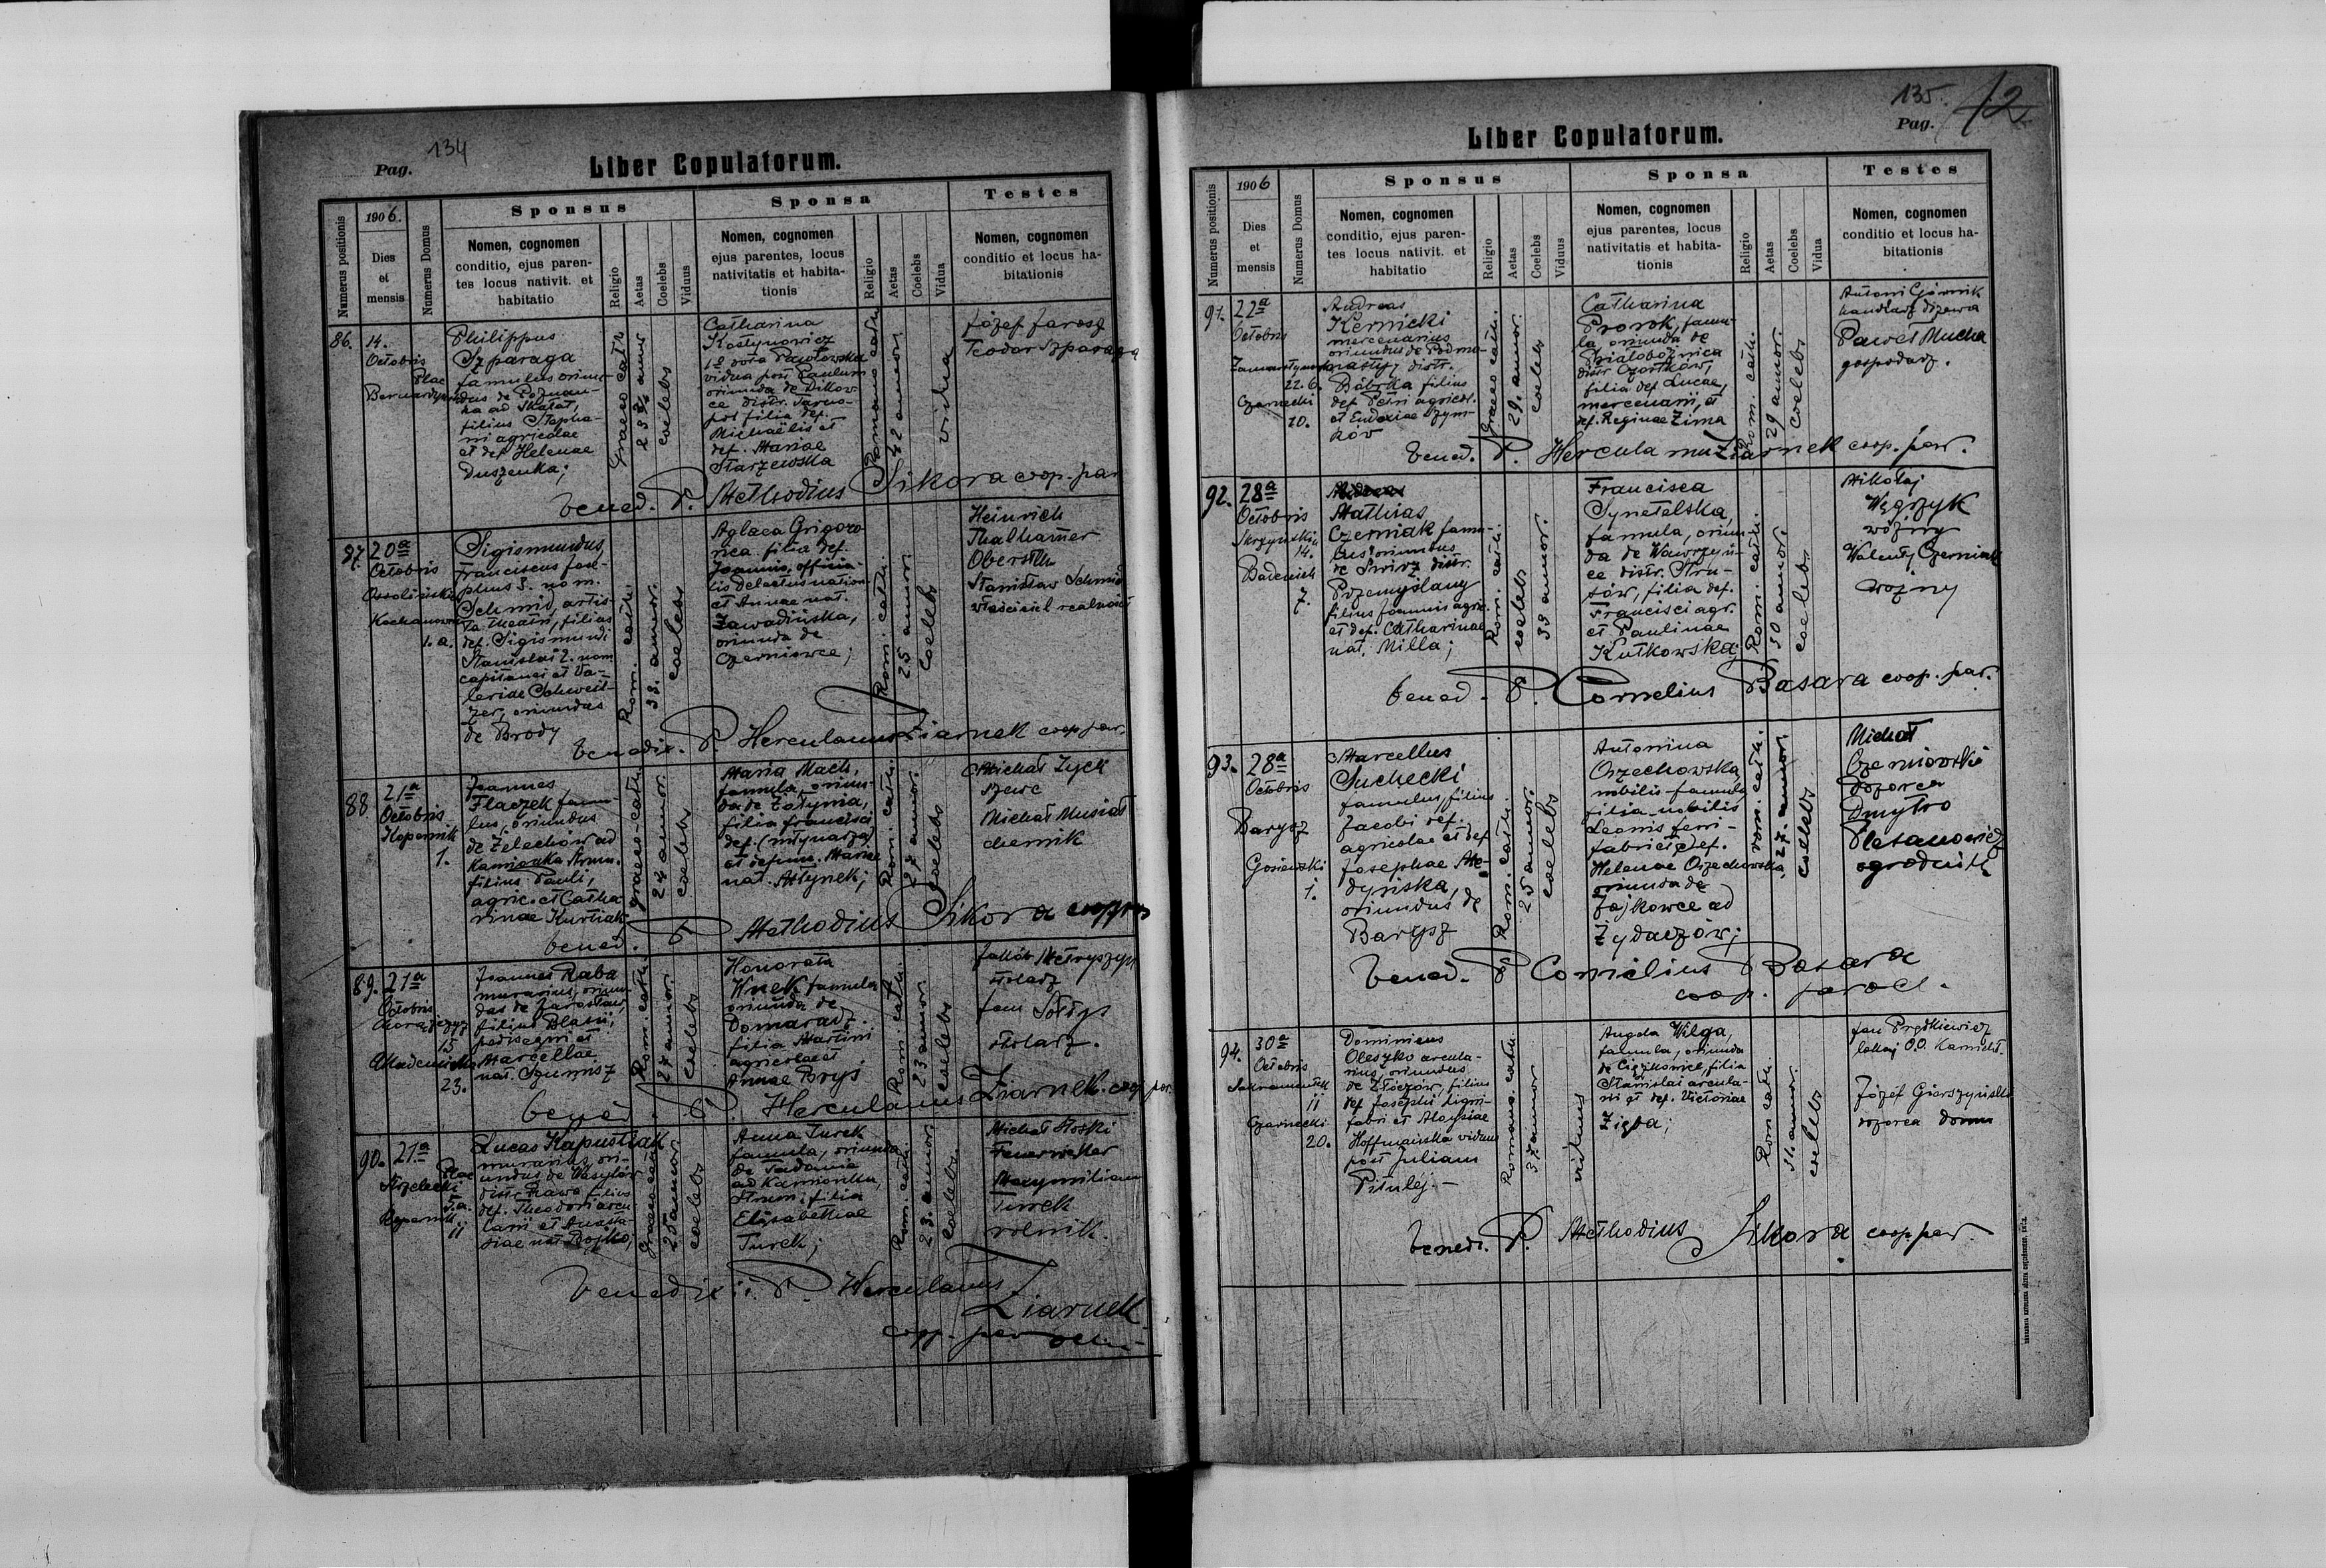 134
Pag.
Liber Copulatorum.
Numerus positionis
1906.
Dies
et
mensis
Numerus Domus
Sponsus
Nomen, cognomen
conditio, ejus paren-
tes locus nativit. et
habitatio
Religio
Aetas
Coelebs
Viduus
Sponsa
Nomen, cognomen
ejus parentes, locus
nativitatis et habita-
tionis
Religio
Aetas
Coelebs
Vidua
Testes
Nomen, cognomen
conditio et locus ha-
bitationis
86.
14.
Octobris
Plac
Philippus
Szparaga
famulus oriun-
dus de Poznan-
ka ad Skałat,
filius Stepha-
ni agricolae
et def. Helenae
Duszenka;
Graeco cath
coelebs
Catharina
Kostynowicz
1º voto Pawłowska
vidua post Paulum
oriunda de Dikow-
ce distr. Tarno-
pol filia def.
Michaëlis et
def. Mariae
Starzewska
Romano cath
42 annor.
vidua
Józef Jarosz
Teodor Szparaga
bened. P. Methodius Sikora coop. par
87.
20ª
Octobris
Ossolińskich
1. a.
Sigismundus,
Franciscus Jose-
phus 3. nom.
Schmid, artis-
ta theatri, filius
def. Sigismundi
Stanislai 2. nom
capitanei et Va-
leriae Schweit-
zer, oriundus
de Brody
Rom. cath.
33. annor.
coelebs
Aglaea Grigoro-
rica filia def.
Joannis, officia-
lis
et Annae nat.
Zawadińska,
oriunda de
Czerniowce;
Rom. cath.
25 annor.
Coelebs
Heinrich
Thalhamer
Oberstltn
Stanisław Schmid
właściciel realności
benedix. P. Herculanus Ziarnek coop par.
88
21ª
Octobris
Kopernik
1.
Joannes
Flaczek famu-
lus, oriundus
de Żelechów ad
Kamionka Strum.
filius Pauli,
agric. et Catha
rinae Kurtiak
graeco-cath.
24 annor.
coelebs
Maria Mach,
famula, oriun-
da de Żołynia,
filia Francisci
def. (młynarza)
et defunc. Mariae
nat. Młynek;
Rom. cath.
27 annor.
Coelebs
Michał Zyck
szewc
Michał Musiał
chemik
bened. P. Methodius Sikora coop par
89.
21ª
Octobris
Chorążczyz
15
Akademicka
23.
Joannes Raba
murarius, oriun-
dus de Jarosław,
filius Blasii,
pedisequi et
Marcellae
nat.
Rom. cath.
27 annor.
coelebs
Honorata
Wnek famula
oriunda de
Domaradz
filia Martini
agricolae et
Annae Bryś
Rom. cath.
23 annor.
coelebs
Jakób
stolarz
Jan Sołtys
stolarz.
bened. P. Herculanus Ziarnek coop par.
90.
21ª
Plac
Strzelecki
5.a.
Kopernik
11
Lucas Kapustiak
murarius, ori-
undus de Wasylów
distr. Rawa filius
def. Theodori arcu
larii et Anasta-
siae nat. Bojko;
Graeco cath
25 annor.
coelebs
Anna Turek
famula, oriunda
de Tadania
ad Kamionka,
Strum. filia
Elisabethae
Turek;
Rom. cath.
23. annor.
Coelebs.
Michał
Feuerwerker
Maxymilian
Turek
rolnik.
benedixi: P. Herculanus
Ziarnek
coop. paroch.
135.
12
Pag.
Liber Copulatorum.
Numerus positionis
1906
Dies
et
mensis
Numerus Domus
Sponsus
Nomen, cognomen
conditio, ejus paren-
tes locus nativit. et
habitatio
Religio
Aetas
Coelebs
Viduus
Sponsa
Nomen, cognomen
ejus parentes, locus
nativitatis et habita-
tionis
Religio
Aetas
Coelebs
Vidua
Testes
Nomen, cognomen
conditio et locus ha-
bitationis
91.
22ª
Octobris
22. 6.
Czarnecki
10.
Andreas
Kernicki
mercenarius
oriundus de Podmo-
nasterz, distr.
Bóbrka filius
def. Petri agricol.
et Eudoxiae Szym-
ków
Graeco cath.
29. annor.
coelebs
Catharina
Prorok, famu-
la, oriunda de
Białobożnica
distr Czortków,
filia def. Lucae,
mercenarii, et
def. Reginae Zima
Rom. cath.
29 annor.
Coelebs
Antoni Górnik
handlarz drzewa
Paweł Mucha
gospodarz.
bened. P. Herculanus Ziarnek coop. par.
92.
28ª
Octobris
14.
Badenich
7.
Mathias
Czerniak famu-
lus oriundus
de Świrz distr.
Przemyślany
filius Joannis agric.
et def. Catharinae
nat. Milla;
Rom. cath.
coelebs
33 annor.
Francisca
Synetelska,
famula, oriun-
da de Wawrzyń-
ce distr. Stru-
sów, filia def.
Francisci agr.
et Paulinae
Kutkowska;
Rom. cath.
30 annor.
coelebs
Mikołaj
Węgrzyk
woźny
Walenty Czerniak
woźny
bened. P. Cornelius Basara coop. par.
93.
28ª
Octobris
Barycz
1.
Marcellus
Suchecki
famulus, filius
Jacobi def.
agricolae et def
Josephae Me-
dyńska,
oriundus de
Barysz
Rom. cath.
25 annor.
coelebs
Antonina
Orzechowska,
nobilis famula
filia nobilis
Leonis ferri-
fabri et def.
Helenae Orzechowska,
oriunda de
Jajkowce ad
Żydaczów;
rom. cath.
27. annor.
coelebs
Michał
Czerniowski
dozorca
Dmytro
ogrodnik
bened. P. Cornelius Basara
coop. paroch.
94.
30ª
Octobris
11
Czarnecki
20.
Dominicus
Oleszko arcula-
rius, oriundus
de Złoczów, filius
def Josephi ligni-
fabri et Aloysiae
Hoffmańska viduus
post Julianam
Pitulej.—
Romano. cath.
37 annor
viduus
Angela Wilga,
famula, oriunda
de Ciężkowice, filia
Stanislai arcula-
rii et def. Victoriae
Zięba;
Rom cath.
31. annor.
coelebs
Jan Prędkiewicz
lokaj
Józef Gierszyński
dozorca domu
bened. P. Methodius Sikora coop par.